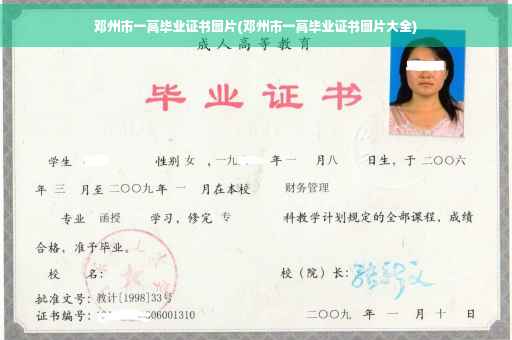 邓州市一高毕业证书图片(邓州市一高毕业证书图片大全)
成人高等教育
毕业证书
学生 性别 女 ，一九 年 一 月八 日生，于 二〇〇六
年 三 月至 二〇〇九 年 一 月在本校 财务管理
专业 函授 学习，修完 专 科教学计划规定的全部课程，成绩
合格，准予毕业。
校 名： 校（院）长：
批准文号：教计[1998]33号
证书编号： 06001310 二〇〇九 年 一 月 十 日